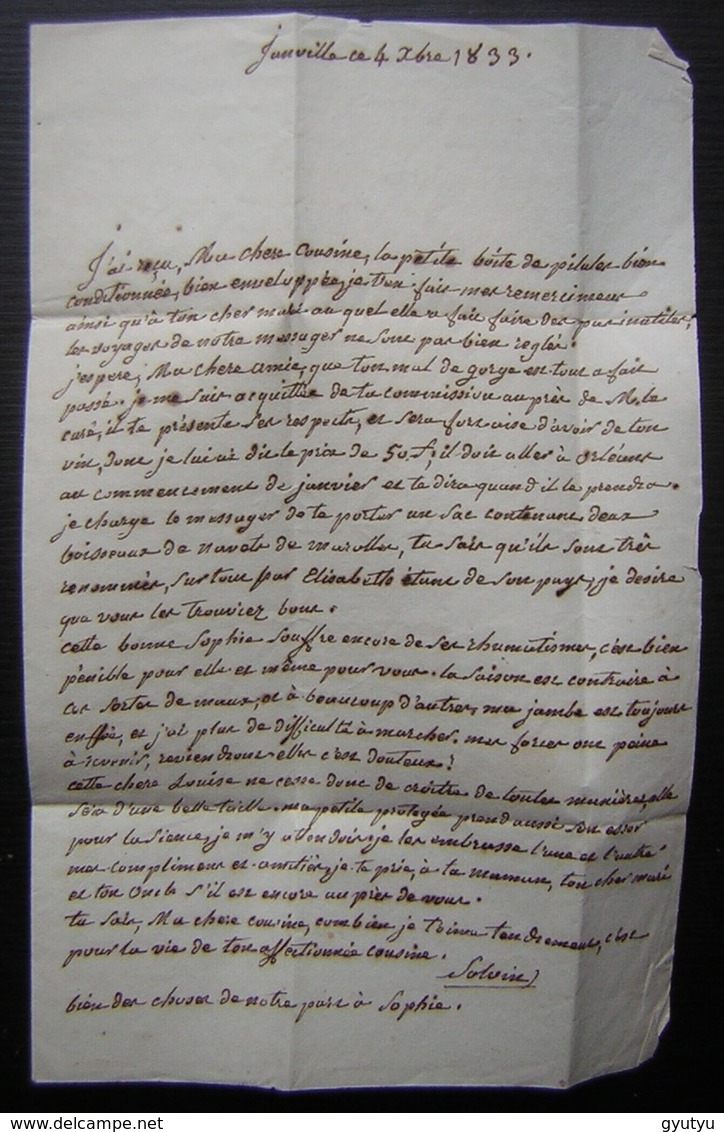 Janville ce 4 Xbre 1833.
J'ai reçu, Ma chere cousine, la petite boite de pilules bien
conditionnée, bien enveloppée, je t'en fais mes remercimens
ainsi qu'à ton cher mari au quel elle a fait faire des pas inutiles,
les voyages de notre messager ne sont pas bien reglés.
j'espere, Ma chere amie, que ton mal de gorge est tout a fait
passé. je me suis acquittée de ta commission auprès de M. le
curé, il te présente ses respects, et sera fort aise d'avoir de ton
vin, dont je lui ai dit le prix de 50 f, il doit aller à Orléans
au commencement de janvier et te dira quand il le prendra.
je charge le messager de te porter un sac contenant deux
boisseaux de navets de marolles, tu sais qu'ils sont très
renommés, surtout par Elisabeth étant de son pays, je desire
que vous les trouviez bons.
cette bonne Sophie souffre encore de ses rhumatismes, c'est bien
pénible pour elle et même pour vous. la saison est contraire à
ces sortes de maux, et à beaucoup d'autres, ma jambe est toujours
enflée, et j'ai plus de difficulté à marcher. mes forces ont peine
à revenir, reviendront-elles c'est douteux!
cette chere Louise ne cesse donc de croitre de toutes manières, elle
sera d'une belle taille. ma petite protégée prend aussi son essor
pour la sience, je m'y attendois, je les embrasse l'une et l'autre
mes complimens et amitiés, je te prie, à ta maman, ton cher mari
et ton oncle s'il est encore au près de vous.
tu sais, Ma chere cousine, combien je t'aime tendrement, c'est
pour la vie de ton affectionnée cousine.
Solvin
bien des choses de notre part à Sophie.
gyutyu
www.delcampe.net
gyutyu